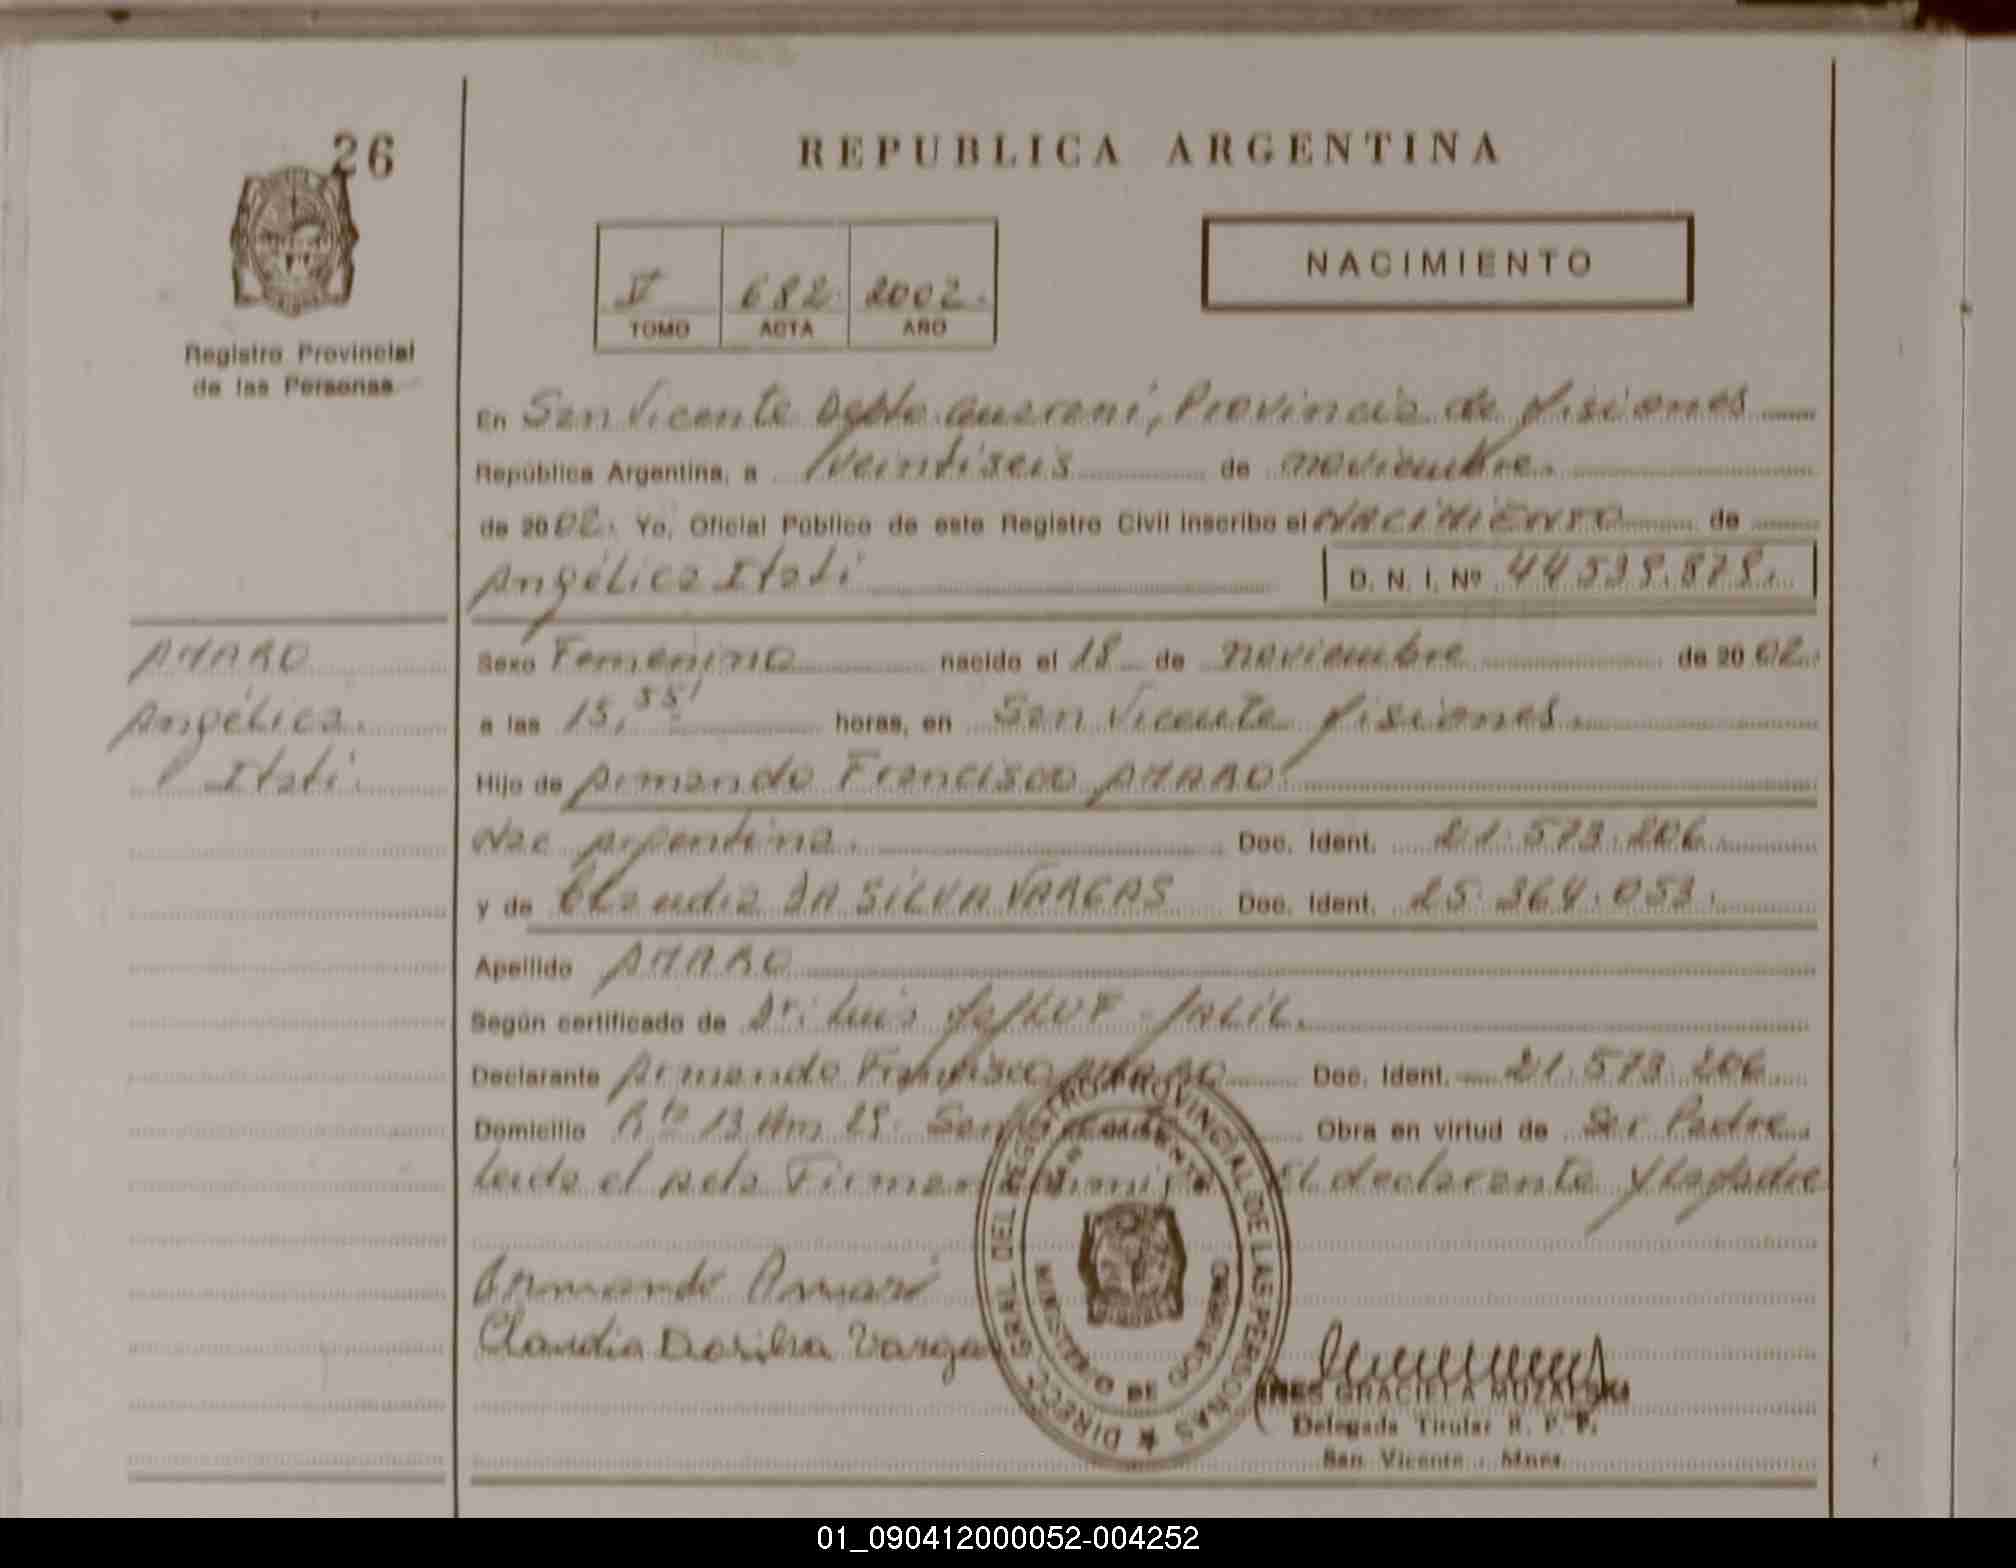 26
REPUBLICA ARGENTINA
NACIMIENTO
V 682 2002.
TOMO ACTA AÑO
Registro Provincial
de las Personas
En San Vicente Depto Guaraní, Provincia de Misiones
República Argentina, a veintiseis de noviembre.
de 2002. Yo, Oficial Público de este Registro Civil inscribo el NACIMIENTO de
Angélica Itatí D. N. I. Nº
AMARO
Angélica
Itatí.
Sexo Femenino nacido el 18 de noviembre de 2002.
a las 15,55' horas, en San Vicente Misiones.
Hijo de Armando Francisco AMARO
Nac argentina. Doc. Ident. 21.573.206.
y de Claudia DA SILVA VARGAS Doc. Ident. 25.364.053.
Apellido AMARO
Según certificado de Dr: Luis JALIL.
Declarante Armando Francisco AMARO Doc. Ident. 21.573.206
Domicilio Rta 13 Km 25. San Vicente Obra en virtud de Ser Padre.
Leída el acta Firman conmigo El declarante y la madre
Armando Amaro
Claudia Dasilva Vargas
DIRECC. GRAL. DEL REGISTRO PROVINCIAL DE LAS PERSONAS
MINISTERIO DE GOBIERNO
INES GRACIELA MUZALSKI
Delegada Titular R. P. P.
San Vicente - Mnes.
01_090412000052-004252